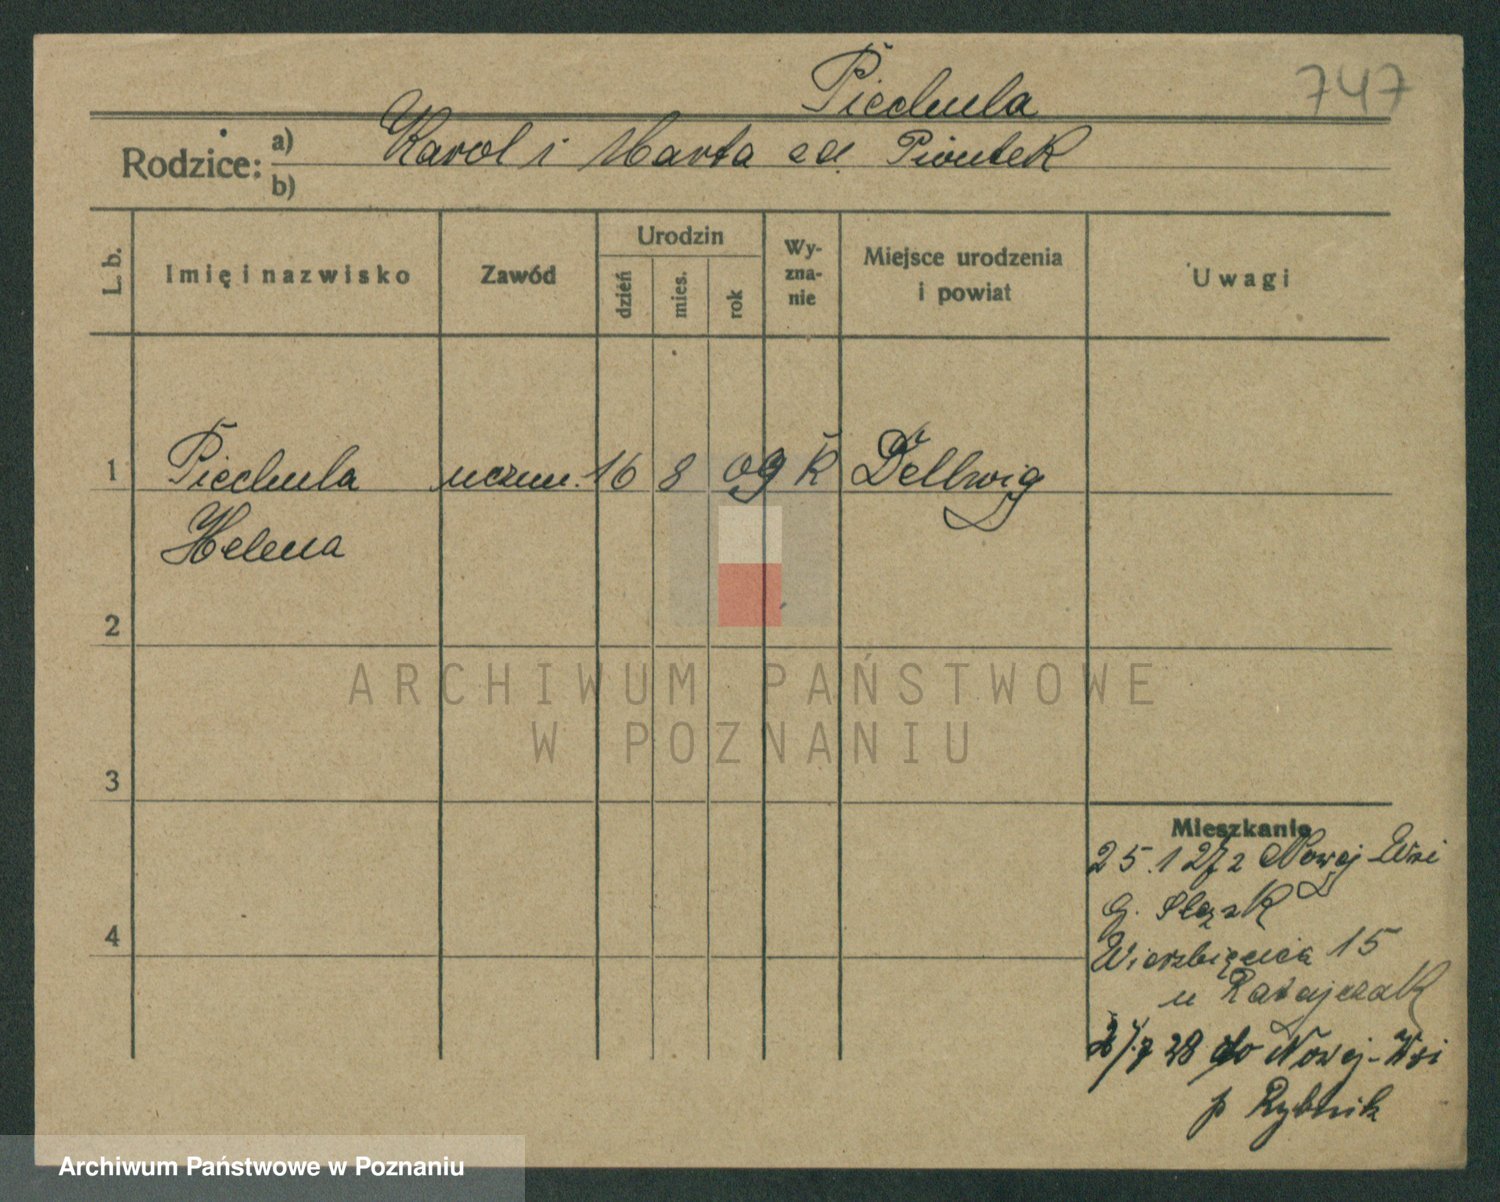 Piechula
747
Rodzice: a) Karol i Marta zd. Piontek
b)
L. b.
Imię i nazwisko
Zawód
Urodzin
dzień
mies.
rok
Wy-
zna-
nie
Miejsce urodzenia
i powiat
Uwagi
1 Piechula uczen. 16 8 09 k Dellwig
Helena
2
3
4
Mieszkanie
25.1 27 z Nowej-Wsi
G. Śląsk
Wierzbięcice 15
u Ratajczak
28 do Nowej-Wsi
p Rybnik
ARCHIWUM PAŃSTWOWE
W POZNANIU
Archiwum Państwowe w Poznaniu